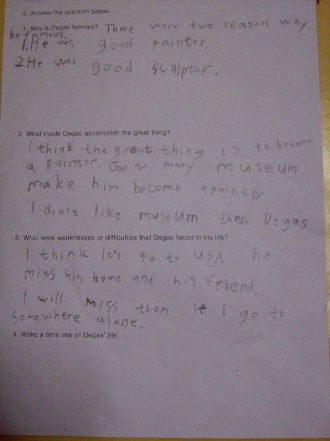 3. Answer the question below.
1. Why is Degas famous? There were two reason why
he famous.
1. He was good painter.
2. He was good sculptor.
2. What made Degas accomplish the great thing?
I think the great thing is to become
a painter. Go to many museum
make him become a painter
I don't like museum then Degas
3. What were weaknesses or difficulties that Degas faced in his life?
I think it's go to USA. he
miss his home and his friend.
I will miss them if i go to
somewhere alone.
4. Make a time line of Degas' life.